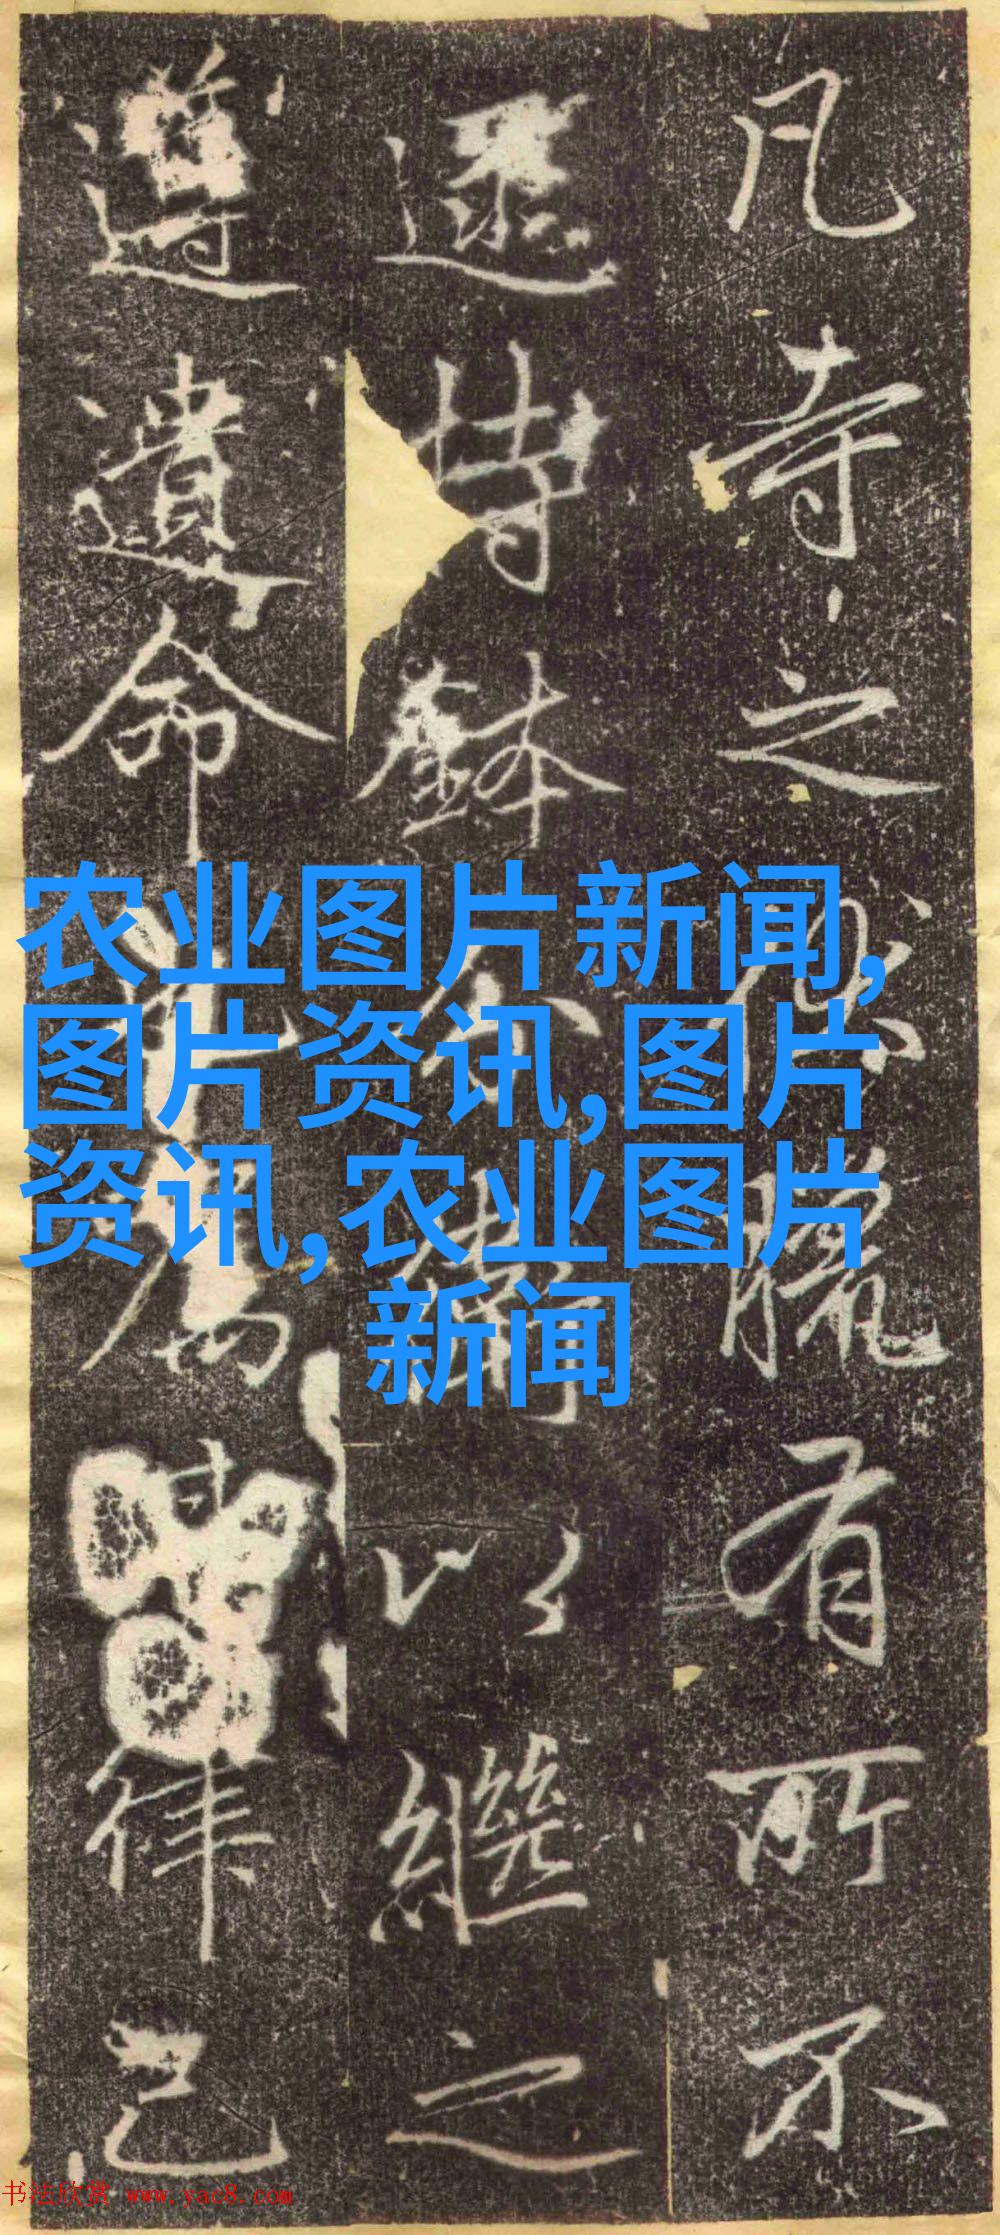 凡寺之伏臘有所不
逮持鉢以繼之
遵遺命律己
农业图片新闻,
图片资讯,图片
资讯,农业图片
新闻
书法欣赏 www.yac8.com